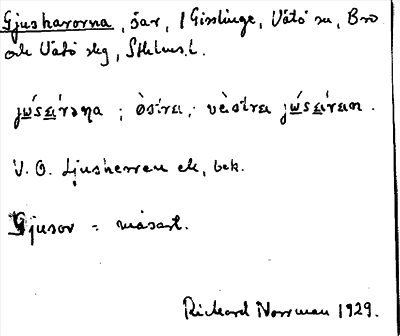 Gjusharorna, öar, / Gisslinge, Vätö sn, Bro
och Vätö skg, Sthlms l.
jɯ́sɛárəɳa ; ö̀stra, vä̀stra jɯ́sɛáran.
V. O. Ljusherren etc, bek.
Gjusor = måsart.
Rickard Norrman 1929.